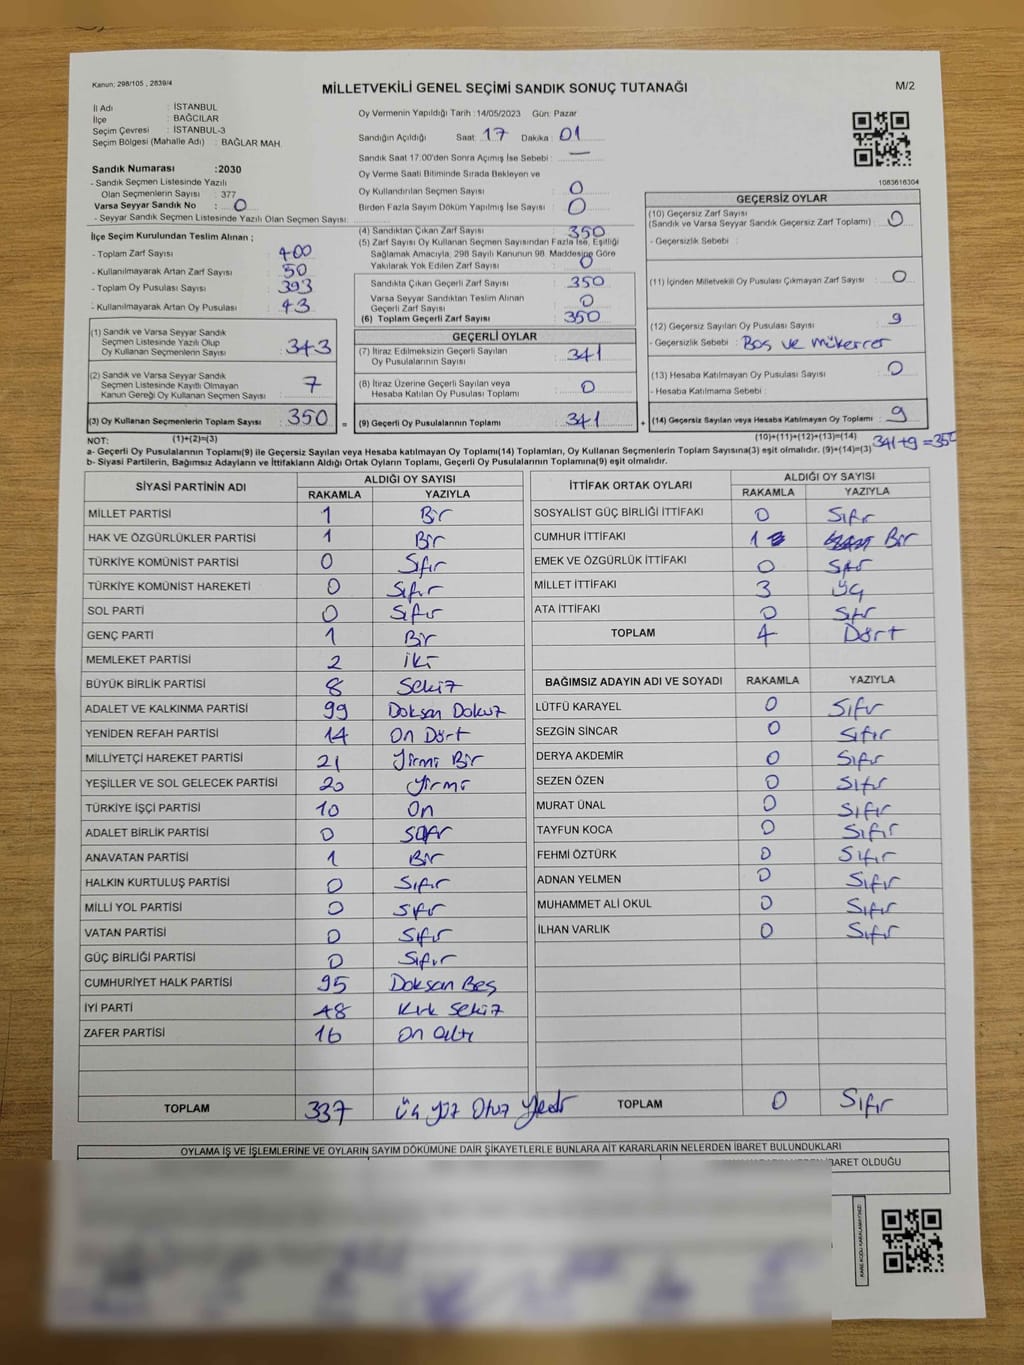 Kanun; 298/105 , 2839/4
MİLLETVEKİLİ GENEL SEÇİMİ SANDIK SONUÇ TUTANAĞI
M/2
İl Adı : İSTANBUL
İlçe : BAĞCILAR
Seçim Çevresi : İSTANBUL-3
Seçim Bölgesi (Mahalle Adı) : BAĞLAR MAH.
Oy Vermenin Yapıldığı Tarih :14/05/2023 Gün: Pazar
Sandığın Açıldığı Saat: 17 Dakika: 01
Sandık Saat 17:00'den Sonra Açımış İse Sebebi : —
Oy Verme Saati Bitiminde Sırada Bekleyen ve
Oy Kullandırılan Seçmen Sayısı : 0
Birden Fazla Sayım Döküm Yapılmış İse Sayısı : 0
1083616304
Sandık Numarası :2030
- Sandık Seçmen Listesinde Yazılı
Olan Seçmenlerin Sayısı : 377
Varsa Seyyar Sandık No : 0
- Seyyar Sandık Seçmen Listesinde Yazılı Olan Seçmen Sayısı:
İlçe Seçim Kurulundan Teslim Alınan ;
- Toplam Zarf Sayısı : 400
- Kullanılmayarak Artan Zarf Sayısı : 50
- Toplam Oy Pusulası Sayısı : 393
- Kullanılmayarak Artan Oy Pusulası : 43
(1) Sandık ve Varsa Seyyar Sandık
Seçmen Listesinde Yazılı Olup
Oy Kullanan Seçmenlerin Sayısı : 343
(2) Sandık ve Varsa Seyyar Sandık
Seçmen Listesinde Kayıtlı Olmayan
Kanun Gereği Oy Kullanan Seçmen Sayısı : 7
(3) Oy Kullanan Seçmenlerin Toplam Sayısı : 350 =
(4) Sandıktan Çıkan Zarf Sayısı : 350
(5) Zarf Sayısı Oy Kullanan Seçmen Sayısından Fazla İse, Eşitliği
Sağlamak Amacıyla, 298 Sayılı Kanunun 98. Maddesine Göre
Yakılarak Yok Edilen Zarf Sayısı : 0
Sandıkta Çıkan Geçerli Zarf Sayısı : 350
Varsa Seyyar Sandıktan Teslim Alınan
Geçerli Zarf Sayısı : 0
(6) Toplam Geçerli Zarf Sayısı : 350
GEÇERLİ OYLAR
(7) İtiraz Edilmeksizin Geçerli Sayılan
Oy Pusulalarının Sayısı : 341
(8) İtiraz Üzerine Geçerli Sayılan veya
Hesaba Katılan Oy Pusulası Toplamı : 0
(9) Geçerli Oy Pusulalarının Toplamı : 341 +
GEÇERSİZ OYLAR
(10) Geçersiz Zarf Sayısı
(Sandık ve Varsa Seyyar Sandık Geçersiz Zarf Toplamı) : 0
- Geçersizlik Sebebi :
(11) İçinden Milletvekili Oy Pusulası Çıkmayan Zarf Sayısı : 0
(12) Geçersiz Sayılan Oy Pusulası Sayısı : 9
- Geçersizlik Sebebi : Boş ve mükerrer
(13) Hesaba Katılmayan Oy Pusulası Sayısı : 0
- Hesaba Katılmama Sebebi :
(14) Geçersiz Sayılan veya Hesaba Katılmayan Oy Toplamı : 9
NOT: (1)+(2)=(3) (10)+(11)+(12)+(13)=(14)
341+9=350
a- Geçerli Oy Pusulalarının Toplamı(9) ile Geçersiz Sayılan veya Hesaba katılmayan Oy Toplamı(14) Toplamları, Oy Kullanan Seçmenlerin Toplam Sayısına(3) eşit olmalıdır. (9)+(14)=(3)
b- Siyasi Partilerin, Bağımsız Adayların ve İttifakların Aldığı Ortak Oyların Toplamı, Geçerli Oy Pusulalarının Toplamına(9) eşit olmalıdır.
SİYASİ PARTİNİN ADI ALDIĞI OY SAYISI
RAKAMLA YAZIYLA
MİLLET PARTİSİ 1 Bir
HAK VE ÖZGÜRLÜKLER PARTİSİ 1 Bir
TÜRKİYE KOMÜNİST PARTİSİ 0 Sıfır
TÜRKİYE KOMÜNİST HAREKETİ 0 Sıfır
SOL PARTİ 0 Sıfır
GENÇ PARTİ 1 Bir
MEMLEKET PARTİSİ 2 iki
BÜYÜK BİRLİK PARTİSİ 8 Sekiz
ADALET VE KALKINMA PARTİSİ 99 Doksan Dokuz
YENİDEN REFAH PARTİSİ 14 On Dört
MİLLİYETÇİ HAREKET PARTİSİ 21 Yirmi Bir
YEŞİLLER VE SOL GELECEK PARTİSİ 20 Yirmi
TÜRKİYE İŞÇİ PARTİSİ 10 On
ADALET BİRLİK PARTİSİ 0 Sıfır
ANAVATAN PARTİSİ 1 Bir
HALKIN KURTULUŞ PARTİSİ 0 Sıfır
MİLLİ YOL PARTİSİ 0 Sıfır
VATAN PARTİSİ 0 Sıfır
GÜÇ BİRLİĞİ PARTİSİ 0 Sıfır
CUMHURİYET HALK PARTİSİ 95 Doksan Beş
İYİ PARTİ 48 Kırk Sekiz
ZAFER PARTİSİ 16 On altı
TOPLAM 337 Üç yüz Otuz Yedi
İTTİFAK ORTAK OYLARI ALDIĞI OY SAYISI
RAKAMLA YAZIYLA
SOSYALİST GÜÇ BİRLİĞİ İTTİFAKI 0 Sıfır
CUMHUR İTTİFAKI 1 Bir
EMEK VE ÖZGÜRLÜK İTTİFAKI 0 Sıfır
MİLLET İTTİFAKI 3 üç
ATA İTTİFAKI 0 Sıfır
TOPLAM 4 Dört
BAĞIMSIZ ADAYIN ADI VE SOYADI RAKAMLA YAZIYLA
LÜTFÜ KARAYEL 0 Sıfır
SEZGİN SİNCAR 0 Sıfır
DERYA AKDEMİR 0 Sıfır
SEZEN ÖZEN 0 Sıfır
MURAT ÜNAL 0 Sıfır
TAYFUN KOCA 0 Sıfır
FEHMİ ÖZTÜRK 0 Sıfır
ADNAN YELMEN 0 Sıfır
MUHAMMET ALİ OKUL 0 Sıfır
İLHAN VARLIK 0 Sıfır
TOPLAM 0 Sıfır
OYLAMA İŞ VE İŞLEMLERİNE VE OYLARIN SAYIM DÖKÜMÜNE DAİR ŞİKAYETLERLE BUNLARA AİT KARARLARIN NELERDEN İBARET BULUNDUKLARI
İBARET OLDUĞU
KARE KODU KARALAMAYINIZ!